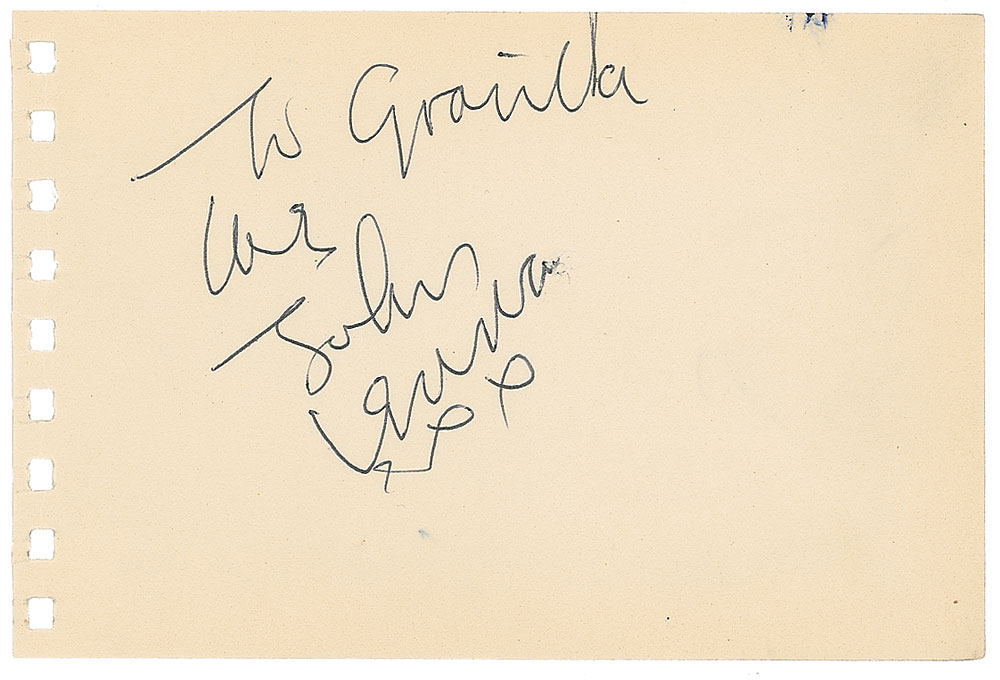 To Granilla
love
John
Lennon
xxx